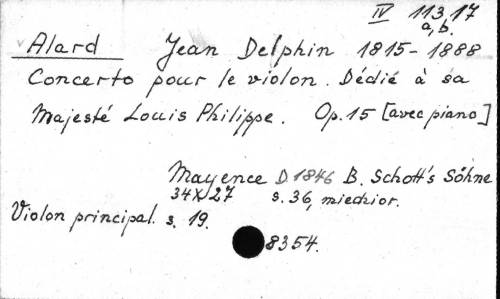 IV 113,17
a,b.
Alard Jean Delphin 1815-1888
Concerto pour le violon. Dédié à sa
Majesté Louis Philippe. Op. 15 [avec piano]
Mayence D 1846 B. Schott's Söhne
34X27 s. 36, miedzior.
Violon principal. s. 19.
8354.